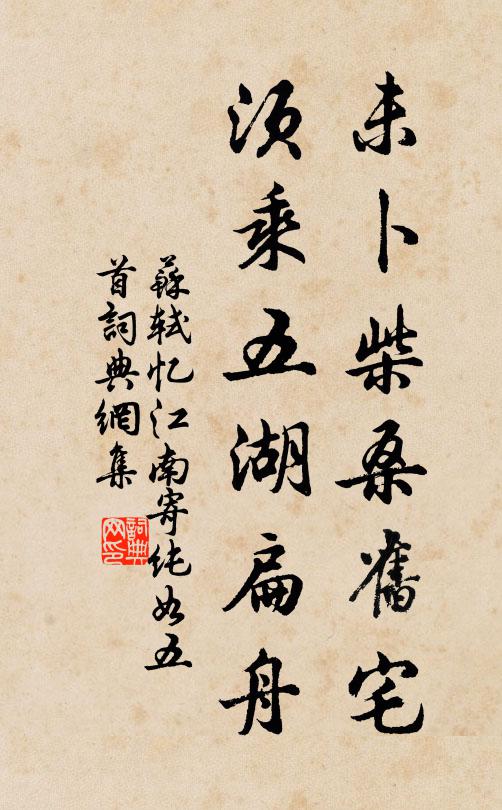 未卜柴桑舊宅
須乘五湖扁舟
蘇軾忆江南寄纯如五
首詞典網集
詞典
网印